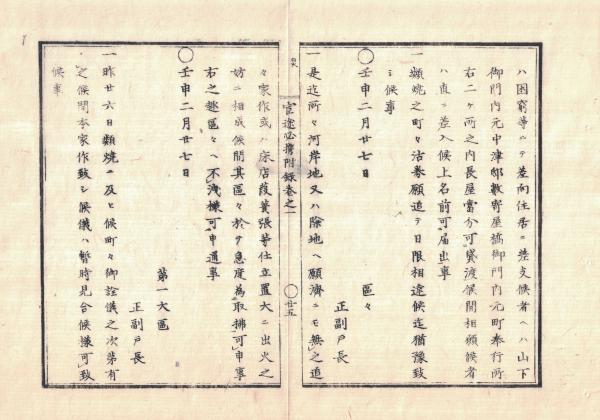 ハ困窮等ニテ差向住居ニ差支候者ヘハ山下
御門内元中津邸数寄屋橋御門内元町奉行所
右二ヶ所之内長屋當分可貸渡候間相願候者
ハ直ニ差入候上名前可届出事
一類焼之町々沽券願追テ日限相達候迄猶豫致
シ候事
○壬申二月廿七日
區々
正副戸長
一是迄所々河岸地又ハ除地ヘ願濟ニモ無之追
官途必携附録巻之一
○廿五
々家作或ハ床店葭簀張等仕立置大ニ出火之
妨ニ相成候間其區々ニ於テ急度為取拂可申事
右之趣區々ヘ不洩様可申通事
○壬申二月廿七日
第一大區
正副戸長
一昨廿六日類焼ニ及ヒ候町々御詮儀之次第有
之候間本家作致シ候儀ハ暫時見合候様可致
候事